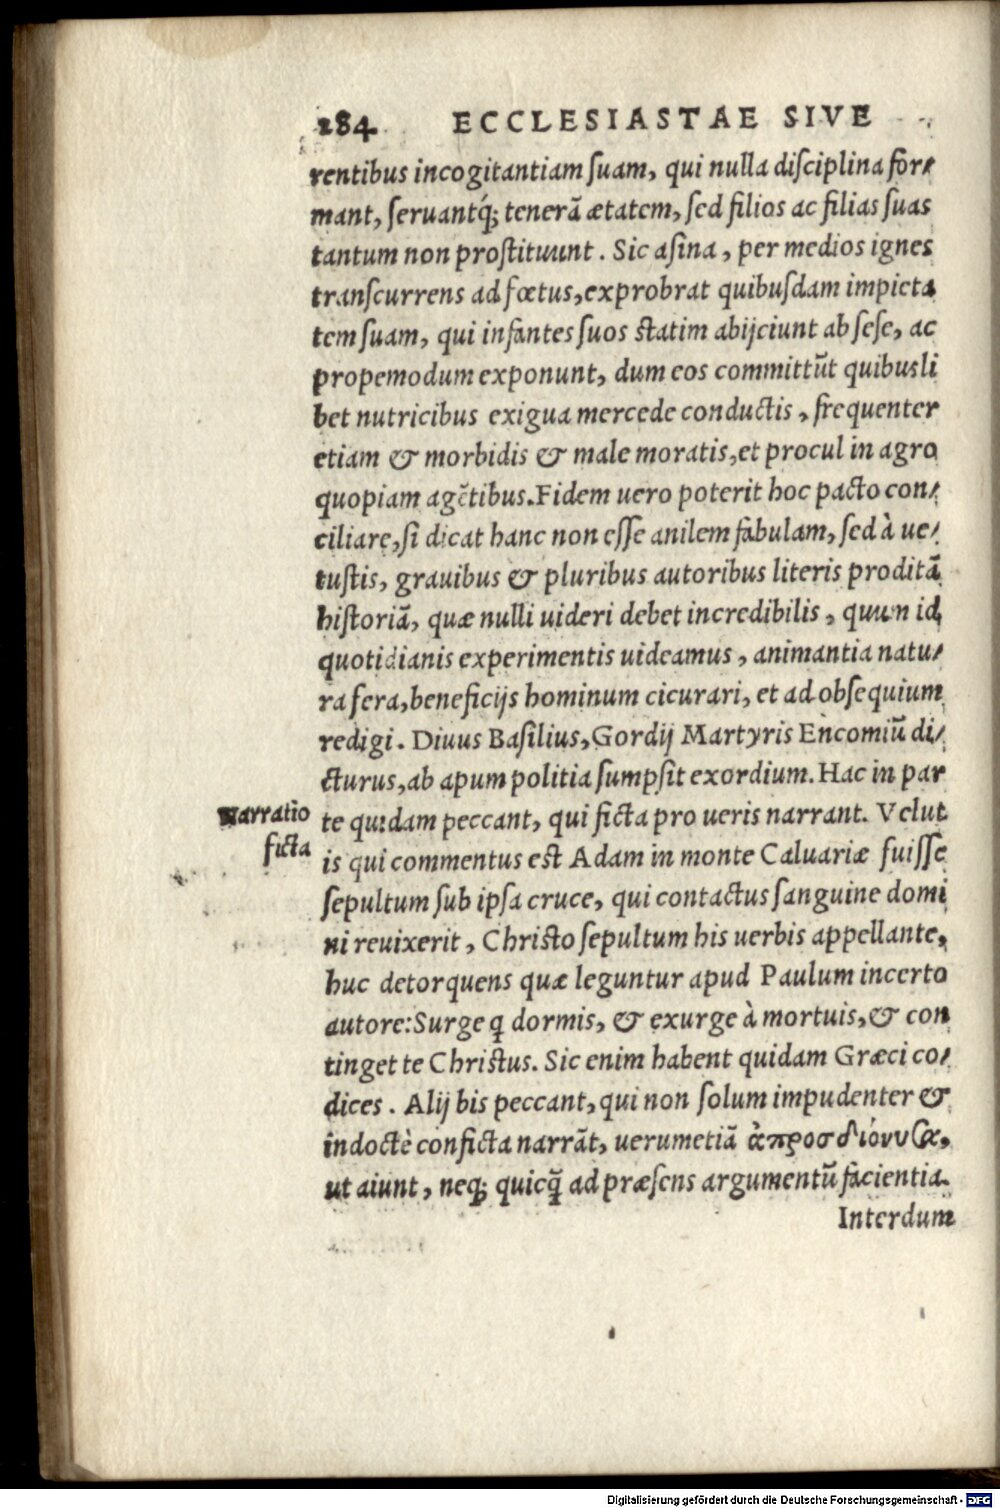 284 ECCLESIASTAE SIVE
rentibus incogitantiam ſuam, qui nulla diſciplina for⸗
mant, ſeruantq́; tenerã ætatem, ſed filios ac filias ſuas
tantum non proſtituunt. Sic aſina, per medios ignes
tranſcurrens ad fœtus, exprobrat quibuſdam impieta
tem ſuam, qui infantes ſuos ſtatim abijciunt ab ſeſe, ac
propemodum exponunt, dum eos committũt quibusli
bet nutricibus exigua mercede conductis, frequenter
etiam & morbidis & male moratis, et procul in agro
quopiam agẽtibus. Fidem uero poterit hoc pacto con⸗
ciliare, ſi dicat hanc non eſſe anilem fabulam, ſed à ue⸗
tuſtis, grauibus & pluribus autoribus literis proditã
hiſtoriã, quæ nulli uideri debet incredibilis, quum id
quotidianis experimentis uideamus, animantia natu⸗
ra fera, beneficijs hominum cicurari, et ad obſequium
redigi. Diuus Baſilius, Gordij Martyris Encomiũ di⸗
cturus, ab apum politia ſumpſit exordium. Hac in par
Narratio ficta
te quidam peccant, qui ficta pro ueris narrant. Velut
is qui commentus eſt Adam in monte Caluariæ fuiſſe
ſepultum ſub ipſa cruce, qui contactus ſanguine domi
ni reuixerit, Chriſto ſepultum his uerbis appellante,
huc detorquens quæ leguntur apud Paulum incerto
autore: Surge q̃ dormis, & exurge à mortuis, & con
tinget te Chriſtus. Sic enim habent quidam Græci co⸗
dices. Alij bis peccant, qui non ſolum impudenter &
indoctè conficta narrãt, uerumetiã ἀπροσδιόνυσα,
ut aiunt, neq; quicq̃ ad præſens argumentũ facientia.
Interdum
Digitalisierung gefördert durch die Deutsche Forschungsgemeinschaft - DFG